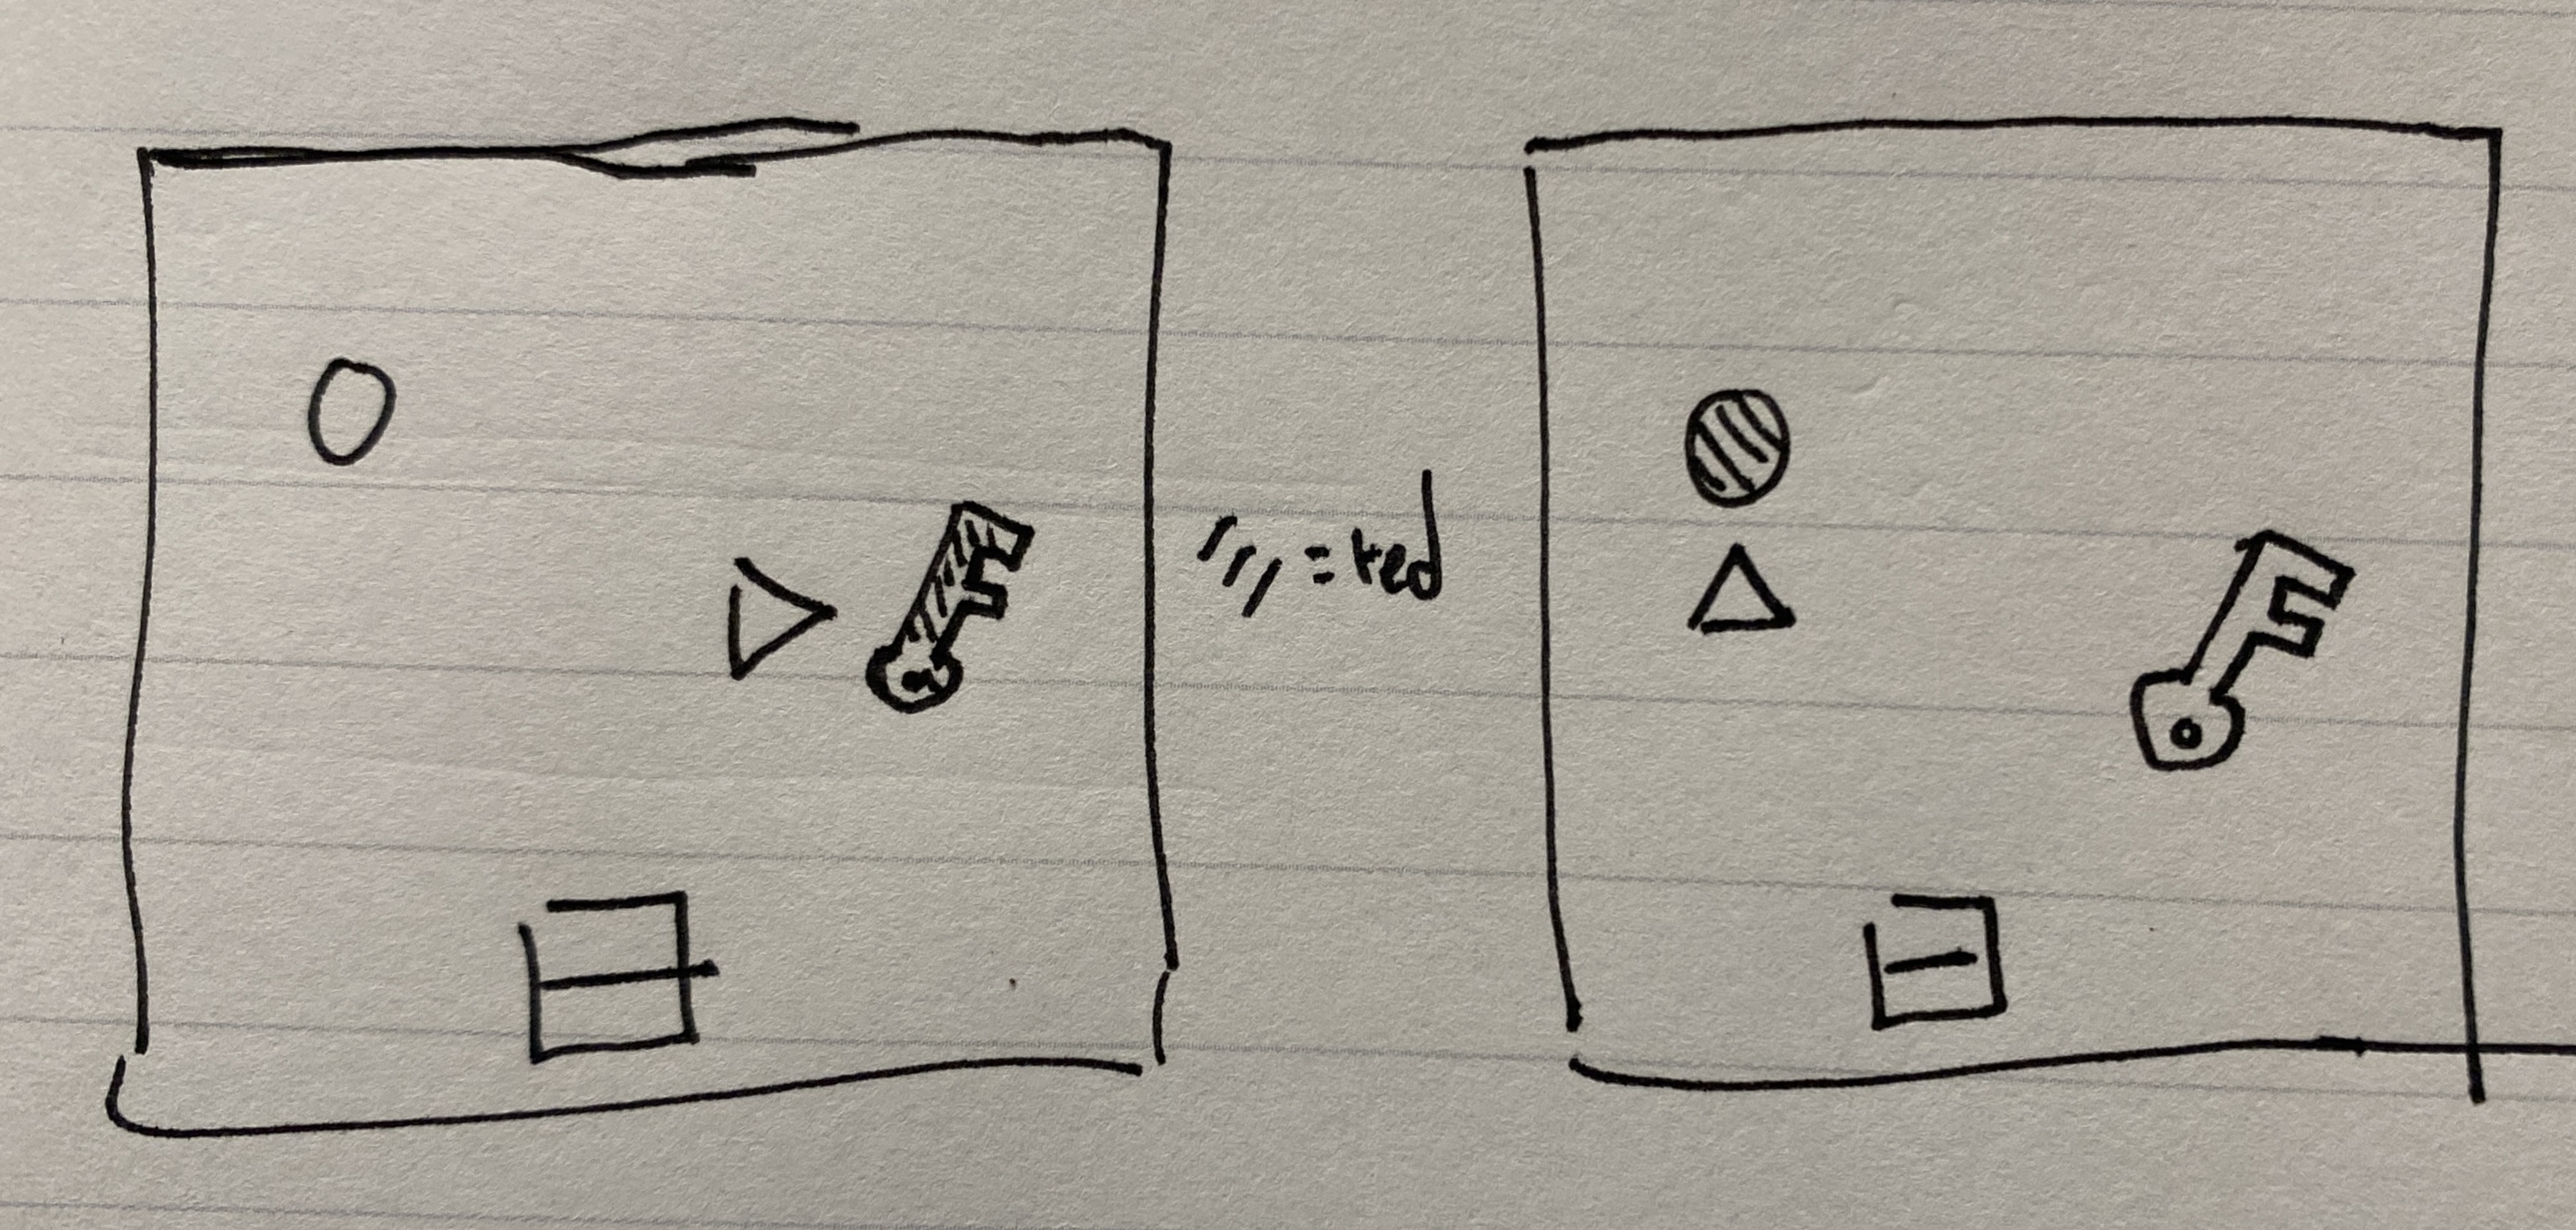 = red